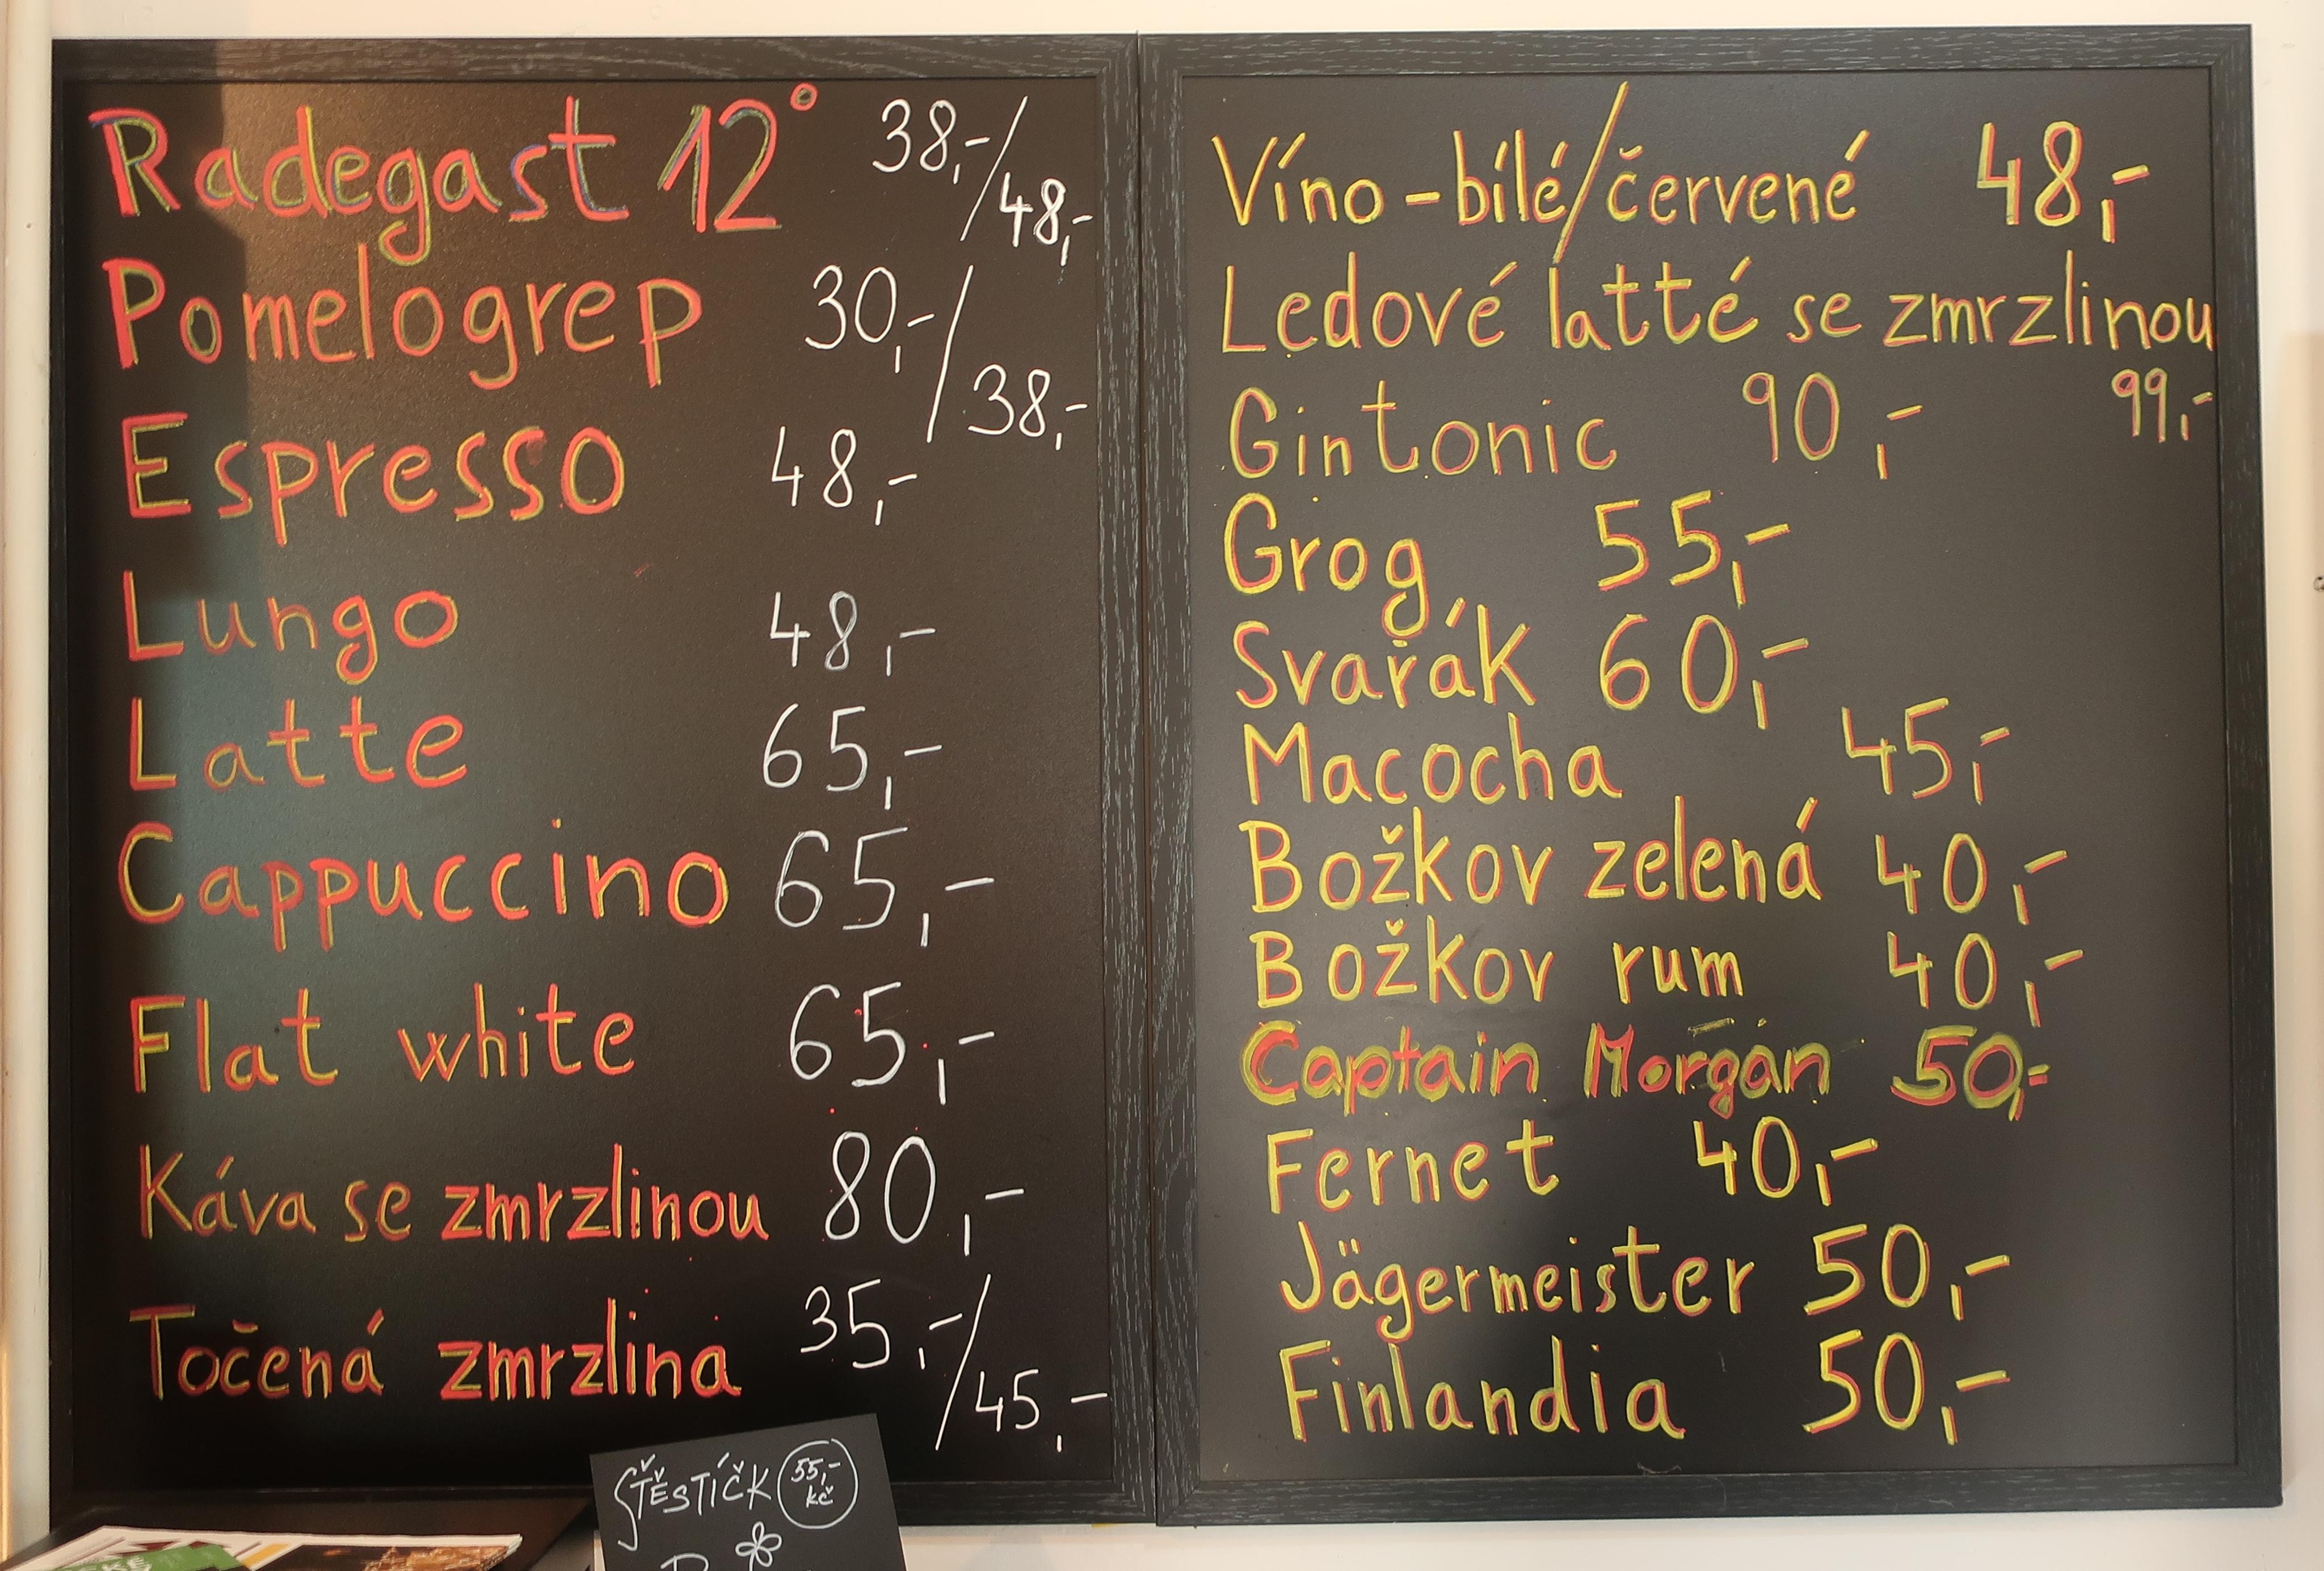 Radegast 12° 38,-/48,-
Pomelogrep 30,-/38,-
Espresso 48,-
Lungo 48,-
Latte 65,-
Cappuccino 65,-
Flat white 65,-
Káva se zmrzlinou 80,-
Točená zmrzlina 35,-/45,-
ŠTĚSTÍČK 55,-
kč
Víno - bílé/červené 48,-
Ledové latté se zmrzlinou
99,-
Gintonic 90,-
Grog 55,-
Svařák 60,-
Macocha 45,-
Božkov zelená 40,-
Božkov rum 40,-
Captain Morgan 50,-
Fernet 40,-
Jägermeister 50,-
Finlandia 50,-